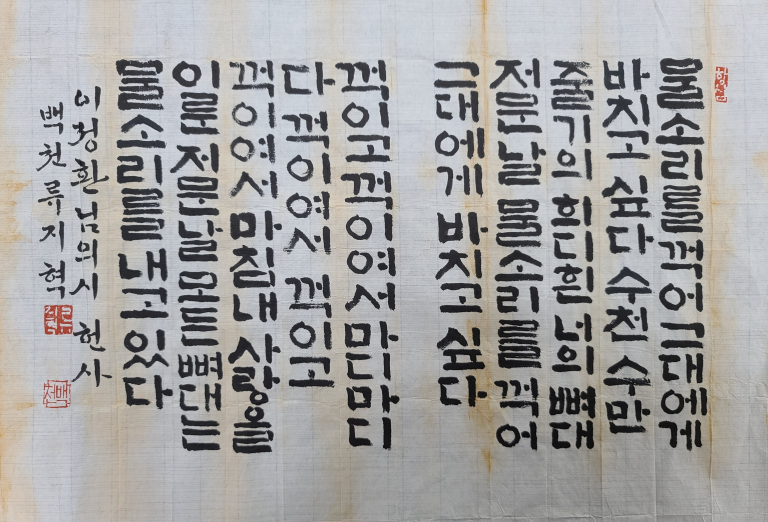 물소리를 꺽어 그대에게
바치고 싶다 수천 수만
줄기의 희디흰 너의 뼈대
저문 날 물소리를 꺽어
그대에게 바치고 싶다
꺽이고 꺽이여서 마디마디
다 꺽이여서 꺽이고
꺽이여서 마침내 사랑을
이룬 저문 날 모든 뼈대는
물소리를 내고 있다
이정환님의 시 헌사
백천 류지혁